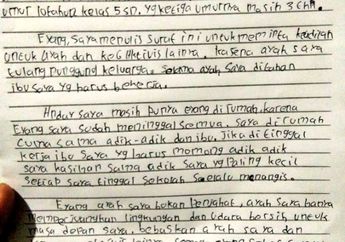 umur 10 tahun kelas 5 SD, yg ketiga umurnya masih 3 thn.
Eyang, saya menulis surat ini untuk meminta keadilan
untuk ayah dan ke 6 Aktivis lainya. karena ayah saya
tulang punggung keluarga. Selama ayah saya ditahan
ibu saya yg harus bekerja.
Andai saya masih punya eyang di rumah, karena
Eyang saya sudah meninggal semua. saya di rumah
cuma sama adik-adik dan ibu. Jika ditinggal
kerja ibu saya yg harus momong adik adik
saya kasihan sama adik saya yg paling kecil
setiap saya tinggal sekolah selalu menangis.
Eyang ayah saya bukan Penjahat, ayah saya hanya
memperjuangkan lingkungan dan udara bersih, untuk
masa depan saya, bebaskan ayah saya dan